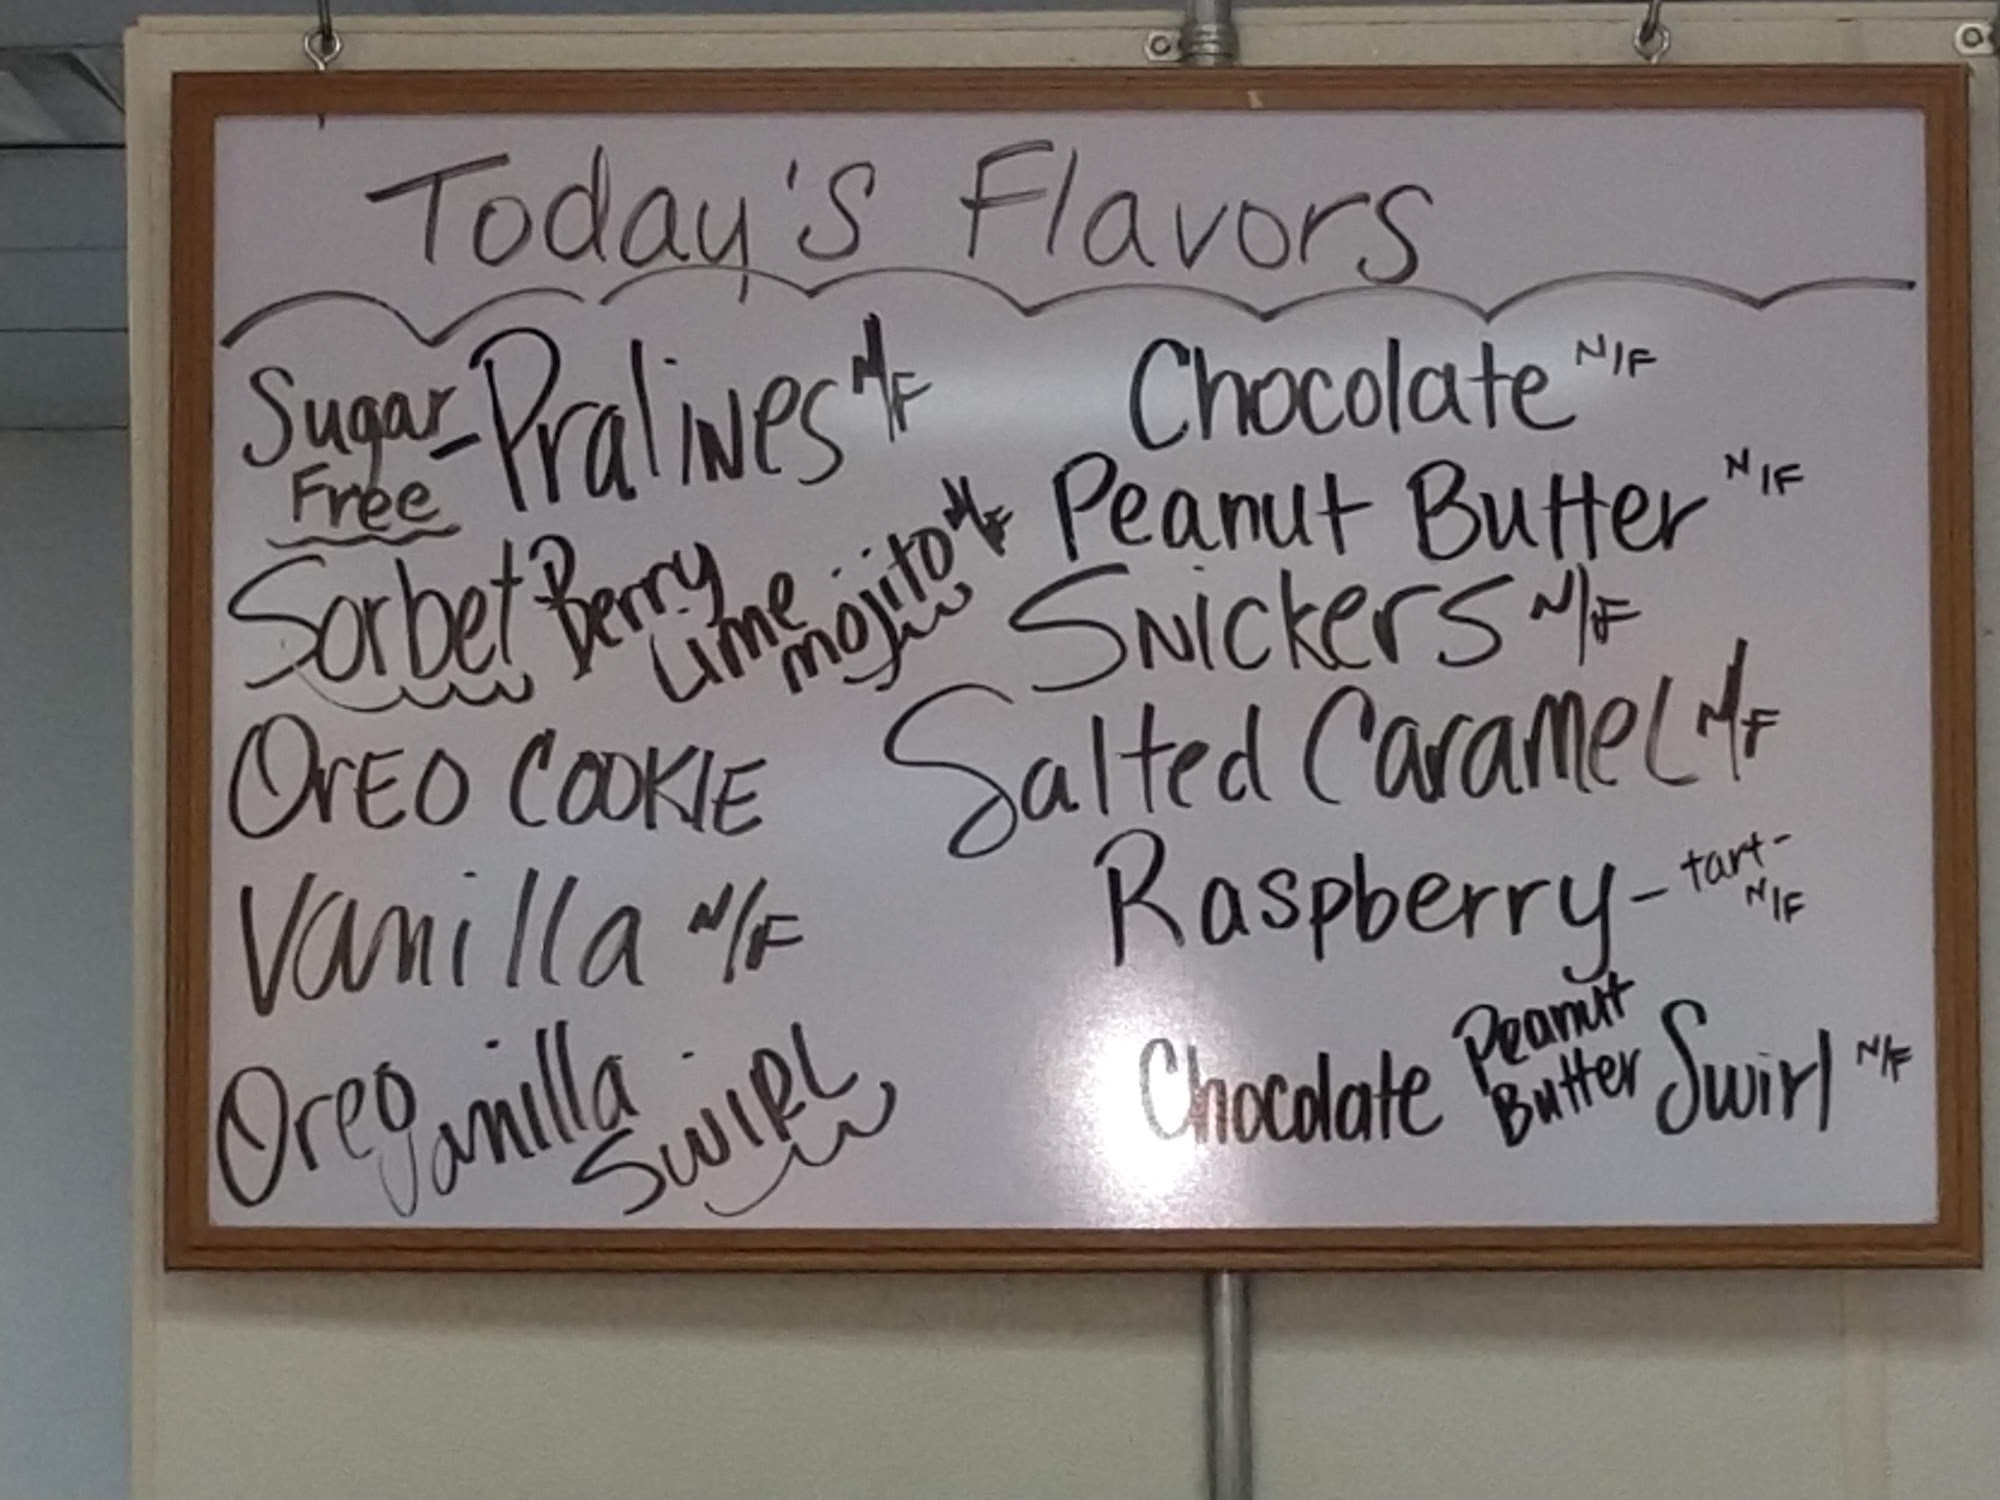 Today's Flavors
Sugar Free - Pralines N/F
Sorbet Berry Lime mojito N/F
OrEO COOKIE
Vanilla N/F
Oreo Vanilla SWIRL
Chocolate N/F
Peanut Butter N/F
SNickers N/F
Salted Caramel N/F
Raspberry - tart - N/F
Chocolate Peanut Butter Swirl N/F